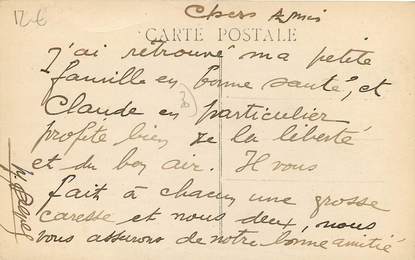 12€
Chers Amis
CARTE POSTALE
J'ai retrouvé ma petite
famille en bonne santé, et
Claude en particulier
profite bien de la liberté
et du bon air. Il vous
fait à chacun une grosse
caresse et nous deux, nous
vous assurons de notre bonne amitié